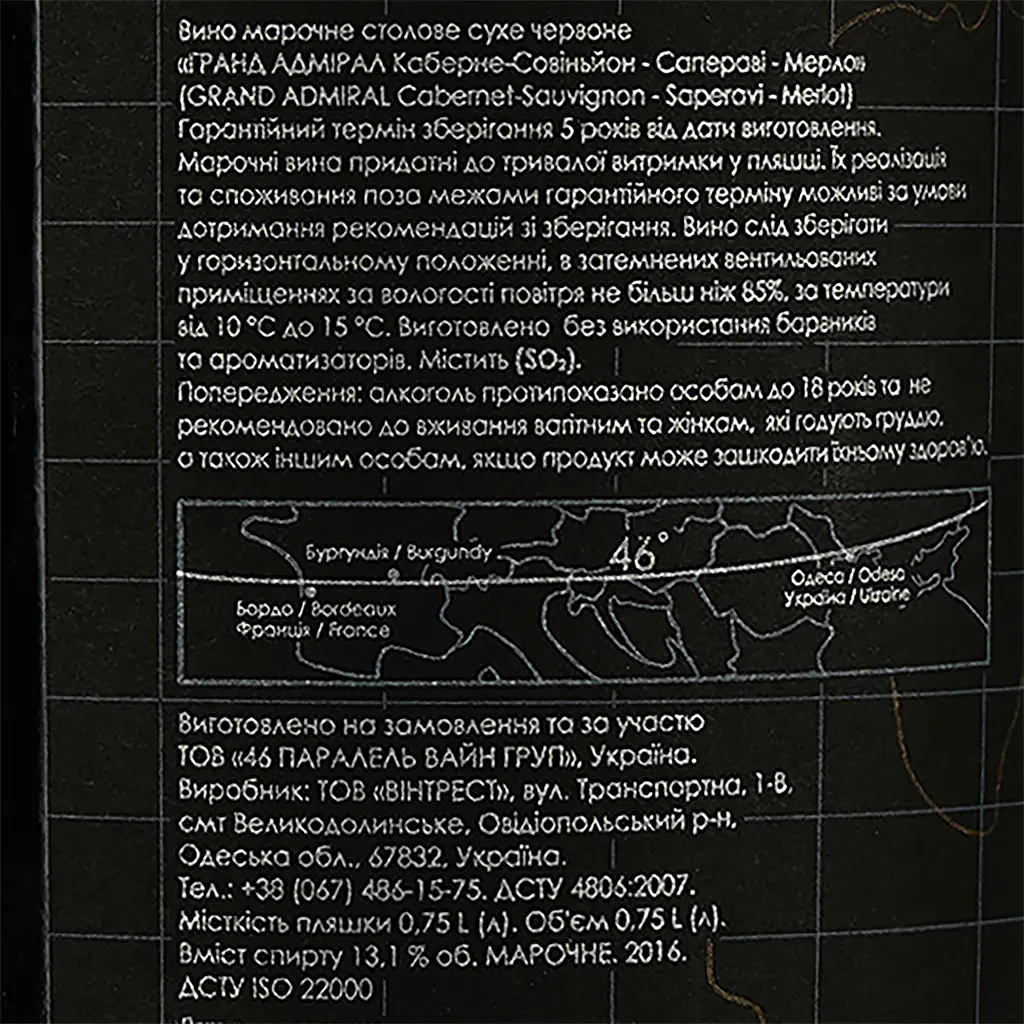 Вино марочне столове сухе червоне
«ГРАНД АДМІРАЛ Каберне-Совіньйон - Сапераві - Мерло»
(GRAND ADMIRAL Cabernet-Sauvignon - Saperavi - Merlot)
Гарантійний термін зберігання 5 років від дати виготовлення.
Марочні вина придатні до тривалої витримки у пляшці. Їх реалізація
та споживання поза межами гарантійного терміну можливі за умови
дотримання рекомендацій зі зберігання. Вино слід зберігати
у горизонтальному положенні, в затемнених вентильованих
приміщеннях за вологості повітря не більш ніж 85%, за температури
від 10 °C до 15 °C. Виготовлено без використання барвників
та ароматизаторів. Містить (SO₂).
Попередження: алкоголь протипоказано особам до 18 років та не
рекомендовано до вживання вагітним та жінкам, які годують груддю,
а також іншим особам, якщо продукт може зашкодити їхньому здоров'ю.
Бургундія / Burgundy
46°
Одеса / Odesa
Україна / Ukraine
Бордо / Bordeaux
Франція / France
Виготовлено на замовлення та за участю
ТОВ «46 ПАРАЛЕЛЬ ВАЙН ГРУП», Україна.
Виробник: ТОВ «ВІНТРЕСТ», вул. Транспортна, 1-В,
смт Великодолинське, Овідіопольський р-н,
Одеська обл., 67832, Україна.
Тел.: +38 (067) 486-15-75. ДСТУ 4806:2007.
Місткість пляшки 0,75 L (л). Об'єм 0,75 L (л).
Вміст спирту 13,1 % об. МАРОЧНЕ. 2016.
ДСТУ ISO 22000